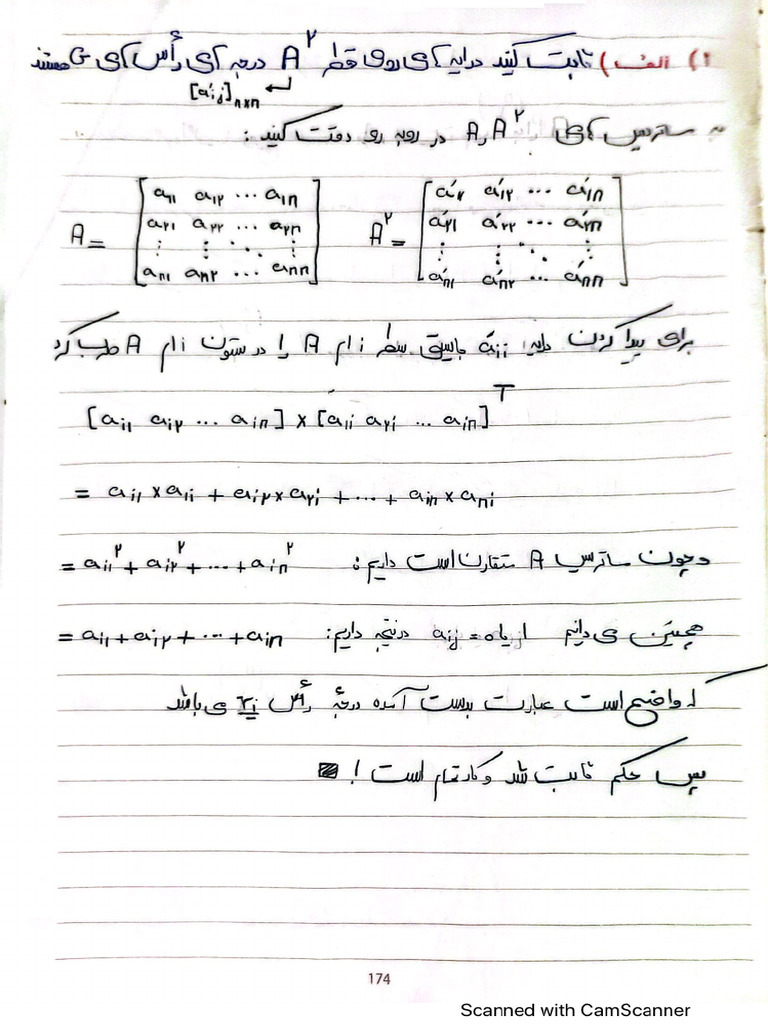 ۱) الف) ثابت کنید درایه های روی قطر A² درجه های رأس های G هستند
[a'ij]n×n
به ماتریس های A و A² در روبه رو دقت کنید:
A = [a₁₁ a₁₂ ... a₁n
a₂₁ a₂₂ ... a₂n
⋮ ⋮ ⋱ ⋮
an₁ an₂ ... ann]
A² = [a'₁₁ a'₁₂ ... a'₁n
a'₂₁ a'₂₂ ... a'₂n
⋮ ⋮ ⋱ ⋮
a'n₁ a'n₂ ... a'nn]
برای پیدا کردن درایه a'ii بایستی سطر i ام A را در ستون i ام A ضرب کرد
[ai₁ ai₂ ... ain] × [a₁i a₂i ... ain]ᵀ
= ai₁ × a₁i + ai₂ × a₂i + ... + ain × ani
و چون ماتریس A متقارن است داریم: = ai₁² + ai₂² + ... + ain²
همچنین می دانیم aij = ۰ یا ۱ در نتیجه داریم: = ai₁ + ai₂ + ... + ain
که واضح است عبارت بدست آمده درجۀ رأس vi می باشد
پس حکم ثابت شد و کار تمام است!
174
Scanned with CamScanner